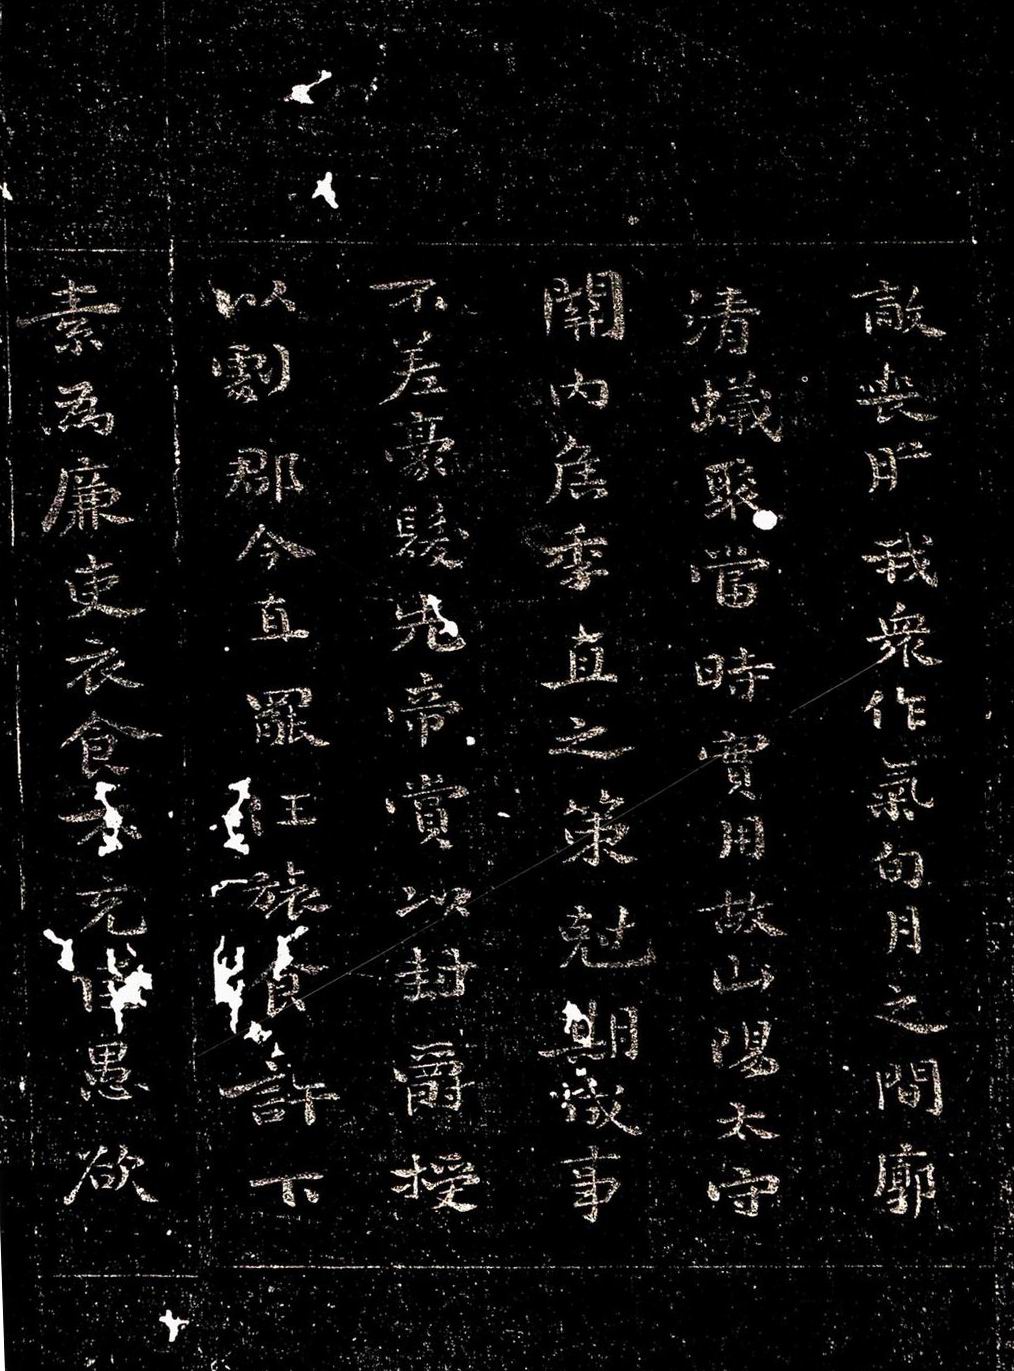 敵喪膽我衆作氣旬月之間廓
清蟻聚當時實用故山陽太守
關內侯季直之策尅期成事
不差豪髮先帝賞以封爵授
以劇郡今直罷任旅食許下
素為廉吏衣食不充臣愚欲